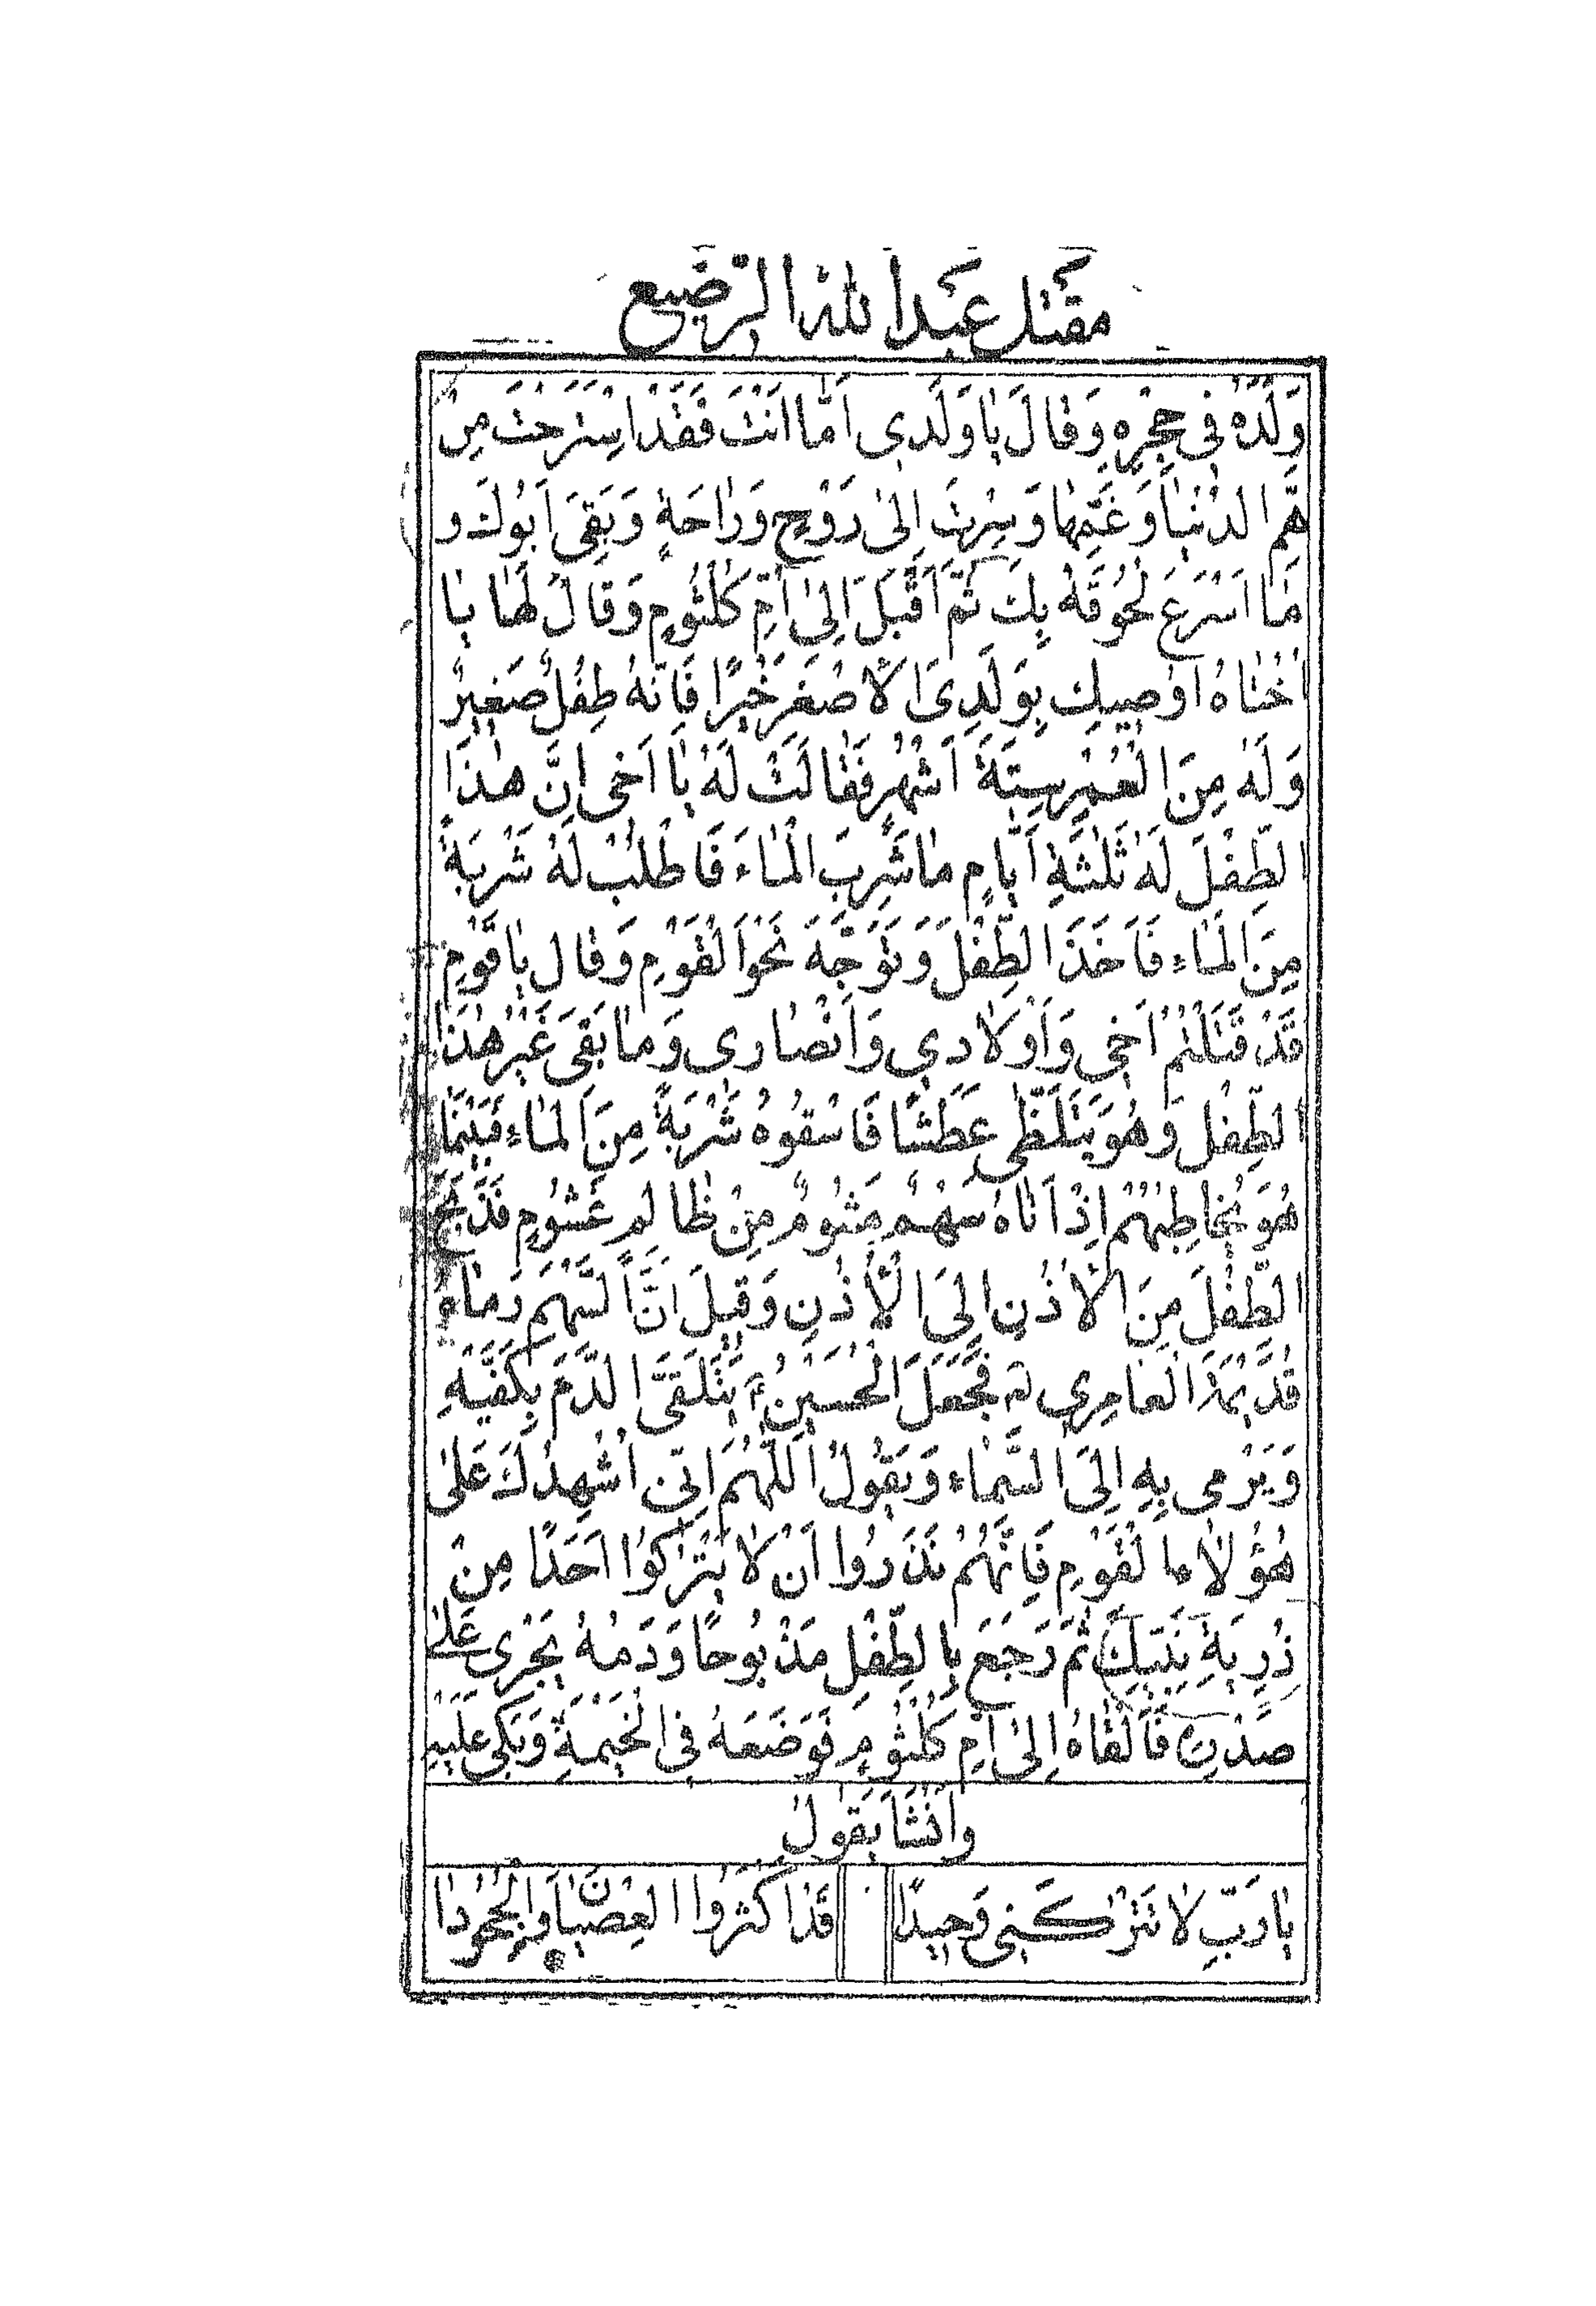 مقتل عبد الله الرضيع
وَلَدَهُ فى حِجْرِهِ وَقالَ يا وَلَدى اَمّا اَنْتَ فَقَدْ اسْتَرَحْتَ مِنْ
هَمِّ الدُّنْيا وَغَمِّها وَسِرْتَ اِلىٰ رَوْحٍ وَراحَةٍ وَبَقِىَ اَبُوكَ و
ما اَسْرَعَ لُحُوقَهُ بِكَ ثُمَّ اَقْبَلَ اِلىٰ اُمِّ كُلْثُومٍ وَقالَ لَها يا
اُخْتاهُ اُوصِيكِ بِوَلَدِىَ الْاَصْغَرِ خَيْرًا فَاِنَّهُ طِفْلٌ صَغِيرٌ
وَلَهُ مِنَ الْعُمْرِ سِتَّةُ اَشْهُرٍ فَقالَتْ لَهُ يا اَخى اِنَّ هٰذَا
الطِّفْلَ لَهُ ثَلٰثَةِ اَيّامٍ ما شَرِبَ الْماءَ فَاطْلُبْ لَهُ شَرْبَةً
مِنَ الْماءِ فَاَخَذَ الطِّفْلَ وَتَوَجَّهَ نَحْوَ الْقَوْمِ وَقال يا قَوْمِ
قَدْ قَتَلْتُمْ اَخى وَاَوْلادي وَاَنْصارى وَما بَقىَ غَيْرُ هٰذَا
الطِّفْلِ وَهُوَ يَتَلَظّى عَطَشًا فَاسْقُوهُ شَرْبَةً مِنَ الْماءِ فَبَيْنَما
هُوَ يُخاطِبُهُمْ اِذْ اَتاهُ سَهْمٌ مَشُومٌ مِنْ ظالِمٍ غَشُومٍ فَذَبَحَ
الطِّفْلَ مِنَ الْاُذُنِ اِلَى الْاُذُنِ وَقِيلَ اَنَّ السَّهْمَ رَماهُ
قُدَيْمَةُ الْعامِرِي لَهُ فَجَعَلَ الْحُسَيْنُ ع يَتَلَقَّى الدَّمَ بِكَفَّيْهِ
وَيَرْمى بِهِ اِلَى السَّماءِ وَيَقُولُ اَللّٰهُمَّ اِنّى اُشْهِدُكَ عَلىٰ
هٰؤُلاءِ الْقَوْمِ فَاِنَّهُمْ نَذَرُوا اَنْ لا يَتْرُكُوا اَحَدًا مِنْ
ذُرِيَةِ نَبِيِّكَ ثُمَّ رَجَعَ بِالطِّفْلِ مَذْبُوحًا وَدَمُهُ يَجْرِى عَلىٰ
صَدْرِهِ فَاَلْقاهُ اِلىٰ اُمِّ كُلْثُومٍ فَوَضَعَهُ فِى الْخَيْمَةِ وَبَكى عَلَيْهِ
وَاَنْشَاَ يَقُولُ
يا رَبِّ لا تَتْرُكْنى وَحِيدًا قَدْ اَكْثَرُوا الْعِصْيانَ وَالْجُحُودا